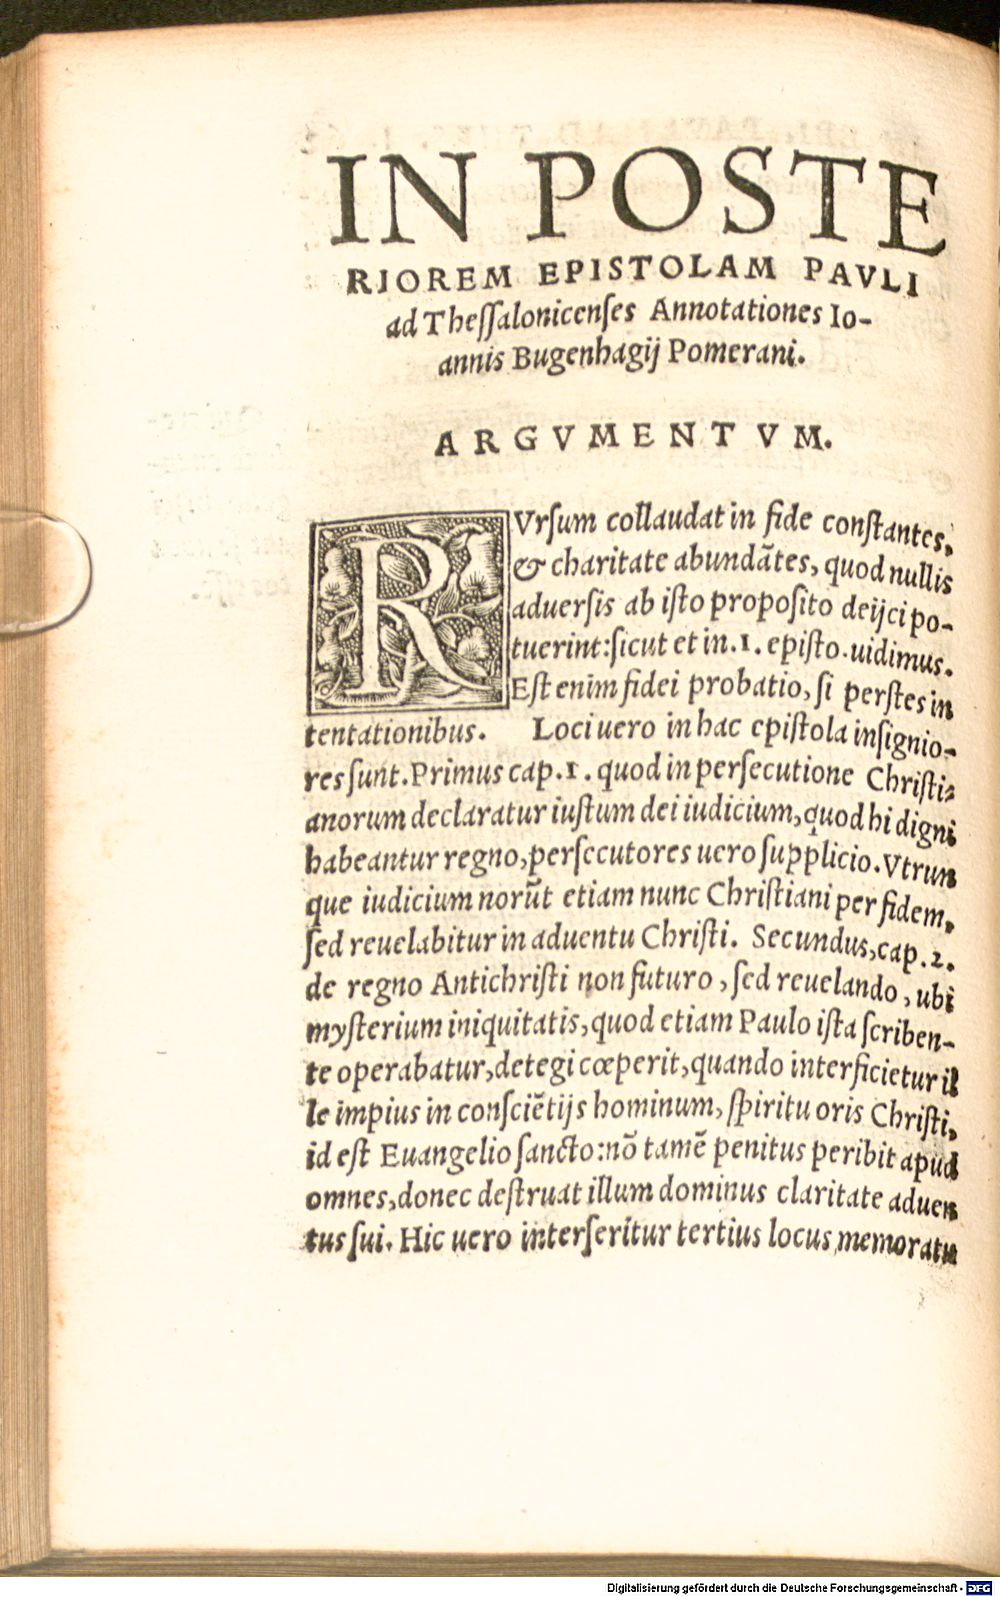 IN POSTE
RIOREM EPISTOLAM PAVLI
ad Theſſalonicenſes Annotationes Io-
annis Bugenhagij Pomerani.
ARGVMENTVM.
RVrſum collaudat in fide conſtantes,
& charitate abundãtes, quod nullis
aduerſis ab iſto propoſito deijci po-
tuerint: ſicut et in .1. epiſto. uidimus.
Eſt enim fidei probatio, ſi perſtes in
tentationibus. Loci uero in hac epiſtola inſignio-
res ſunt. Primus cap. 1. quod in perſecutione Chriſti-
anorum declaratur iuſtum dei iudicium, quod hi digni
habeantur regno, perſecutores uero ſupplicio. Vtrun
que iudicium norũt etiam nunc Chriſtiani per fidem,
ſed reuelabitur in aduentu Chriſti. Secundus, cap. 2.
de regno Antichriſti non futuro, ſed reuelando, ubi
myſterium iniquitatis, quod etiam Paulo iſta ſcriben-
te operabatur, detegi cœperit, quando interficietur il
le impius in conſciẽtijs hominum, ſpiritu oris Chriſti,
id eſt Euangelio ſancto: nõ tamẽ penitus peribit apud
omnes, donec deſtruat illum dominus claritate aduen
tus ſui. Hic uero interſeritur tertius locus memoratu
Digitalisierung gefördert durch die Deutsche Forschungsgemeinschaft - DFG